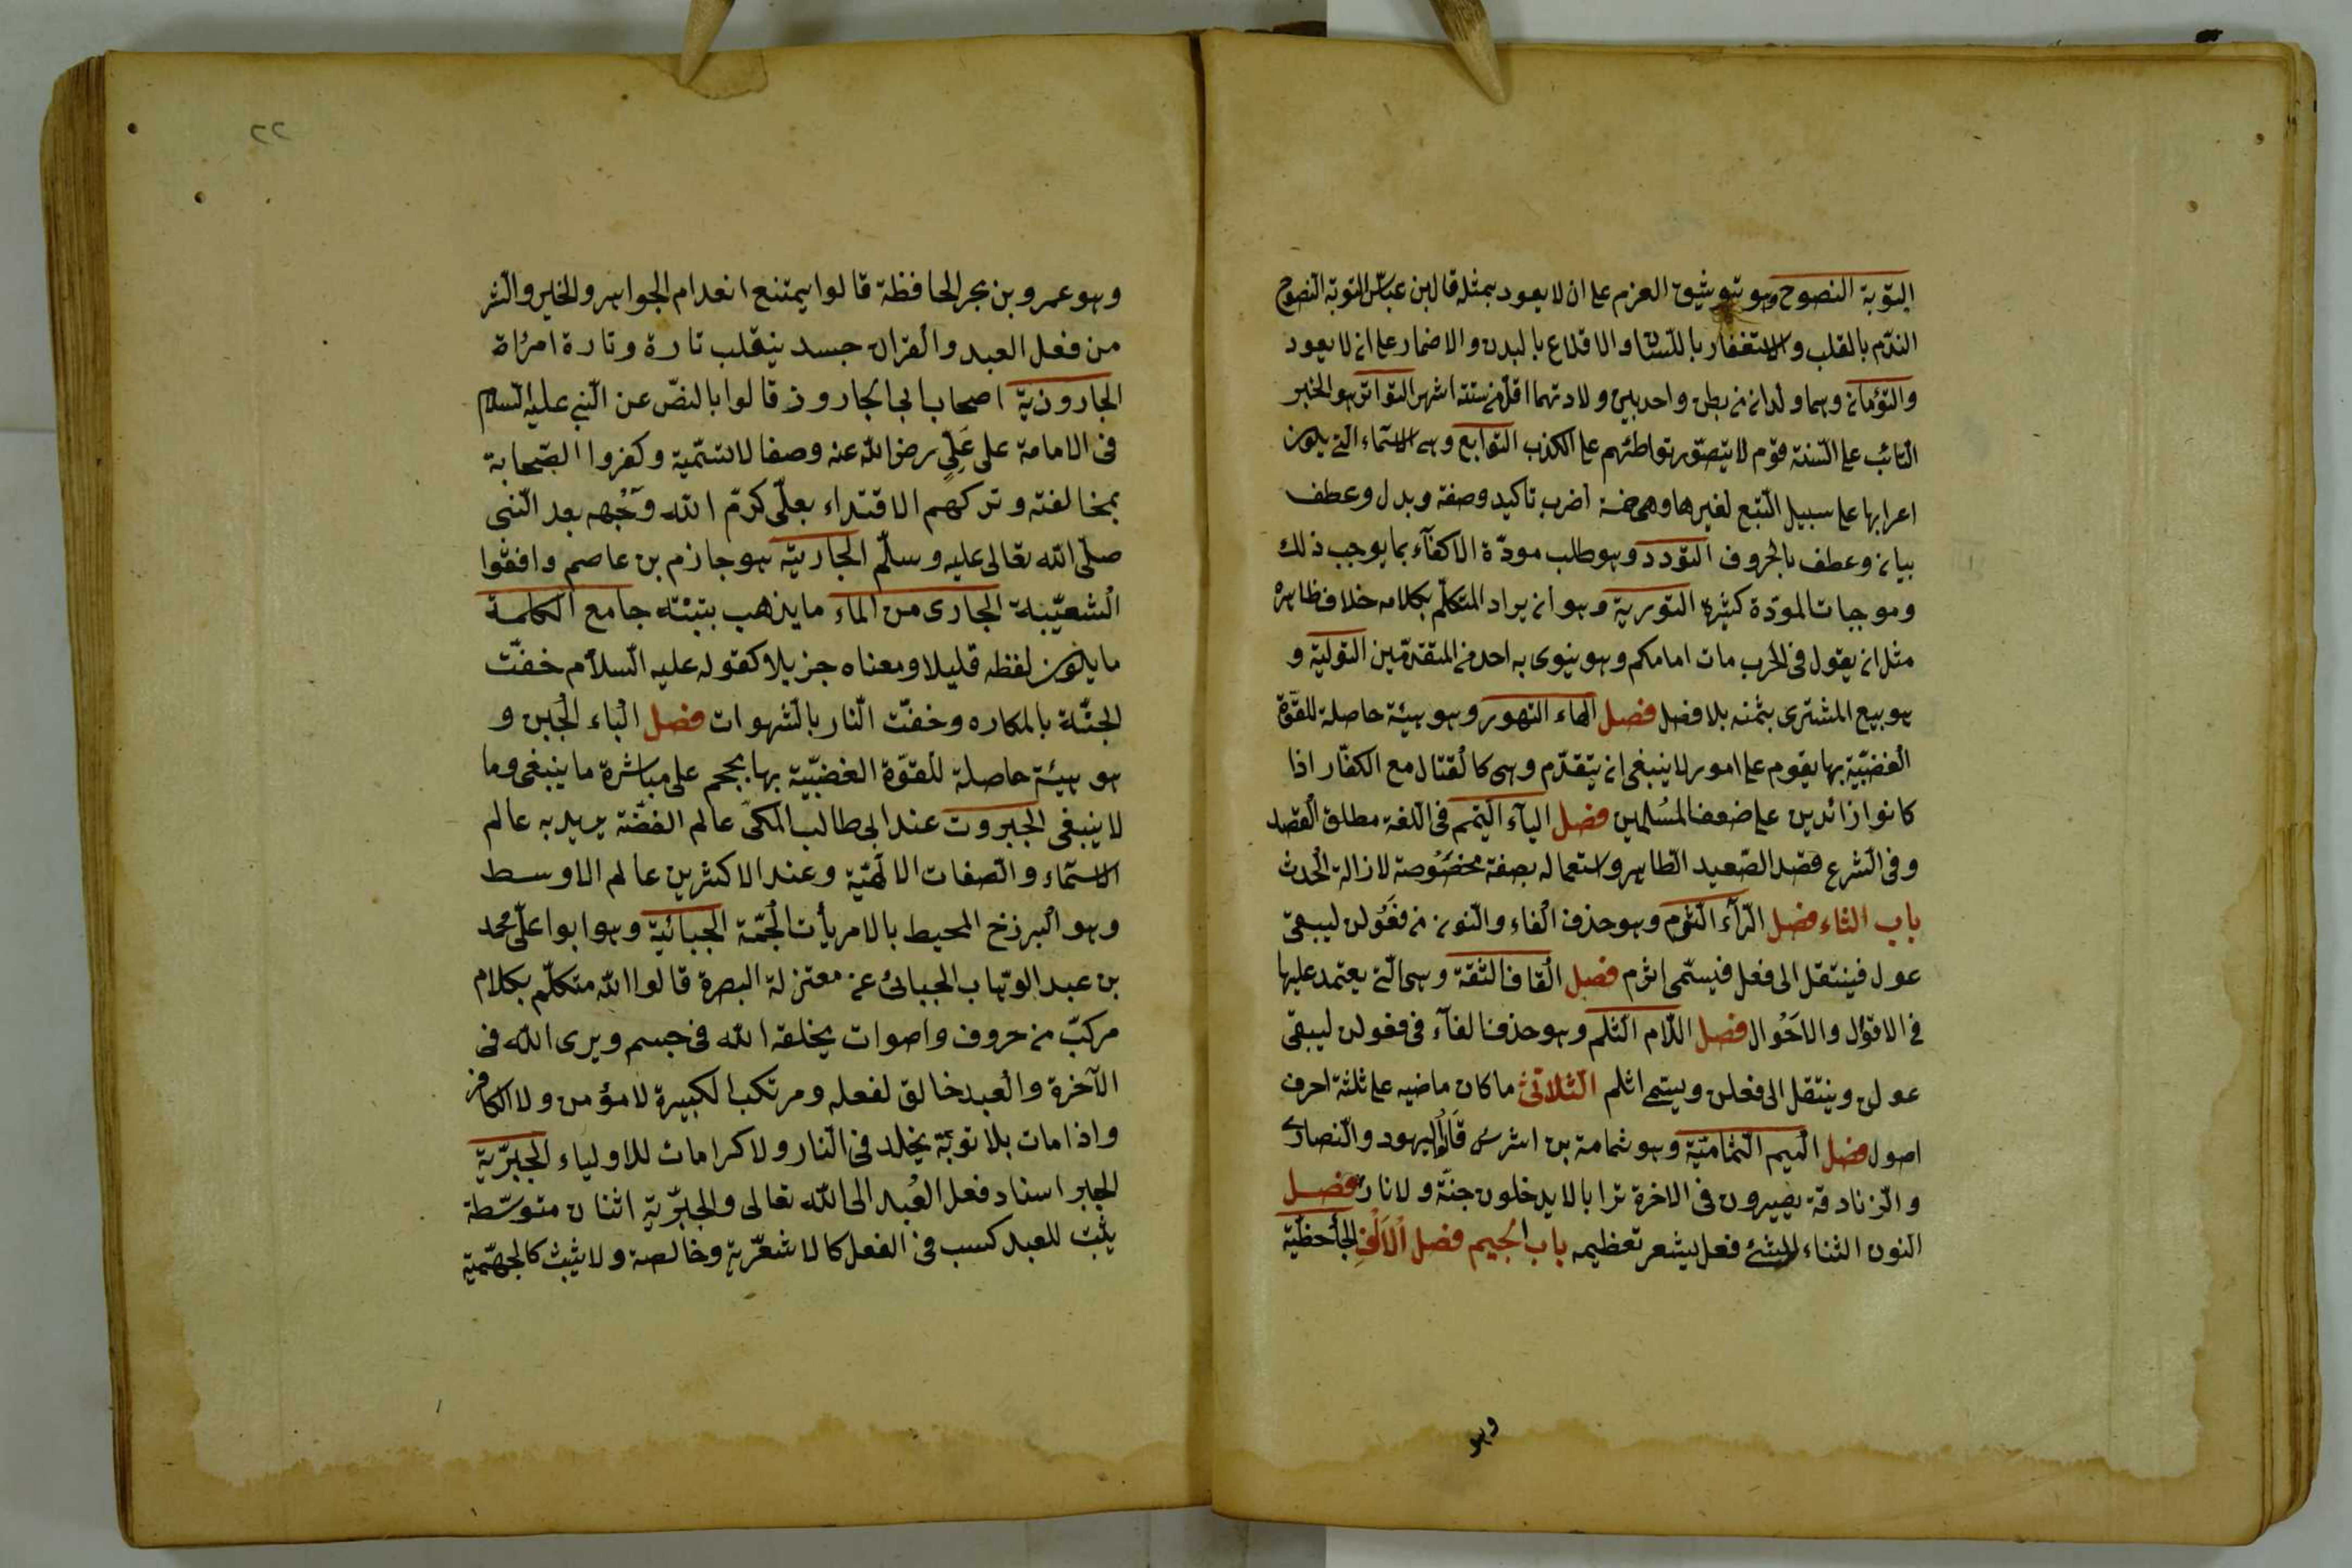 التوبة النصوح وهو توثيق العزم على ان لا يعود بمثله قال ابن عباس التوبة النصوح
الندم بالقلب والاستغفار باللسان والاقلاع بالبدن والاضمار على ان لا يعود
والتؤمان وهما ولدان من بطن واحد بين ولادتهما اقل من ستة اشهر التواتر هو الخبر
الثائب على السنة قوم لا يتصور تواطئهم على الكذب التوابع وهى الاسماء التى يكون
اعرابها على سبيل التبع لغيرها وهى خمسة اضرب تاكيد وصفة وبدل وعطف
بيان وعطف بالحروف التودد وهو طلب مودّة الاكفآء بما يوجب ذلك
وموجبات المودّة كثيرة التورية وهو ان يراد المتكلم بكلامه خلاف ظاهره
مثل ان يقول فى الحرب مات امامكم وهو ينوى به احد من المتقدمين التولية و
هو بيع المشترى بثمنه بلا فضل فصل الهاء التهور وهو هيئة حاصلة للقوّة
الغضبيّة بها يقوم على امور لا ينبغى ان يتقدّم وهى كالقتال مع الكفّار اذا
كانوا زائدين على ضعف المسلمين فصل اليآء التيمم فى اللغة مطلق القصد
وفى الشرع قصد الصّعيد الطاهر واستعماله بصفة مخصوصة لازالة الحدث
باب الثاء فصل الرّآء الثرم وهو حذف الفاء والنون من فعولن ليبقى
عول فينتقل الى فعل فيسمى اثرم فصل القاف الثقة وهى التى يعتمد عليها
فى الاقوال والاحوال فصل اللام الثلم وهو حذف الفآء فى فعولن ليبقى
عولن وينتقل الى فعلن ويسمى اثلم الثلاثى ما كان ماضيه على ثلثة احرف
اصول فصل الميم الثمامية وهو ثمامة بن اشرس قالوا اليهود والنصارى
والزنادقة يصيرون فى الاخرة ترابا لا يدخلون جنّة ولا نارا فصل
النون الثناء للشئ فعل يشعر تعظيمه باب الجيم فصل الالف الجاحظية
وهو
٢٢
وهو عمرو بن بحر الحافظة قالوا يمتنع انعدام الجواهر والخير والشر
من فعل العبد والقران جسد ينقلب تارة وتارة امرأة
الجارودية اصحاب ابى الجارود قالوا بالنصّ عن النبى عليه السلام
فى الامامة على علىّ رضى الله عنه وصفا لا تسميّة وكفروا الصّحابة
بمخالفته وتركهم الاقتداء بعلّى كرّم الله وجهه بعد النّبى
صلّى الله تعالى عليه وسلّم الجازية هو جازم بن عاصم وافقوا
الشعيّبة الجارى من الماء ما يذهب بتبنه جامع الكلمة
ما يكون لفظه قليلا ومعناه جزيلا كقوله عليه السّلام خفّت
الجنّة بالمكاره وخفّت النّار بالشهوات فصل الباء الجبن و
هو هيئة حاصلة للقوّة الغضبيّة بها يحجم على مباشرة ما ينبغى وما
لا ينبغى الجبروت عند ابى طالب المكى عالم الغضة يريد به عالم
الاسمّاء والصفات الالهيّة وعند الاكثرين عالم الاوسط
وهو البرزخ المحيط بالامريأت الجمّة الجبائية وهو ابوا علّى محمد
بن عبد الوهّاب الجبائى عن معتزلة البصرة قالوا الله متكلّم بكلام
مركبّ من حروف واصوات يخلقه الله فى جسم ويرى الله فى
الآخرة والعبد خالق لفعله ومرتكب الكبيرة لا مؤمن ولا الكافر
واذا مات بلا توبّة يخلد فى النار ولا كرامات للاولياء الجبرّية
الجبر اسناد فعل العبد الى الله تعالى والجبرّية اثنان متوسّطة
يثبت للعبد كسب فى الفعل كالاشعّرية وخالصة ولا يثبت كالجهمّية